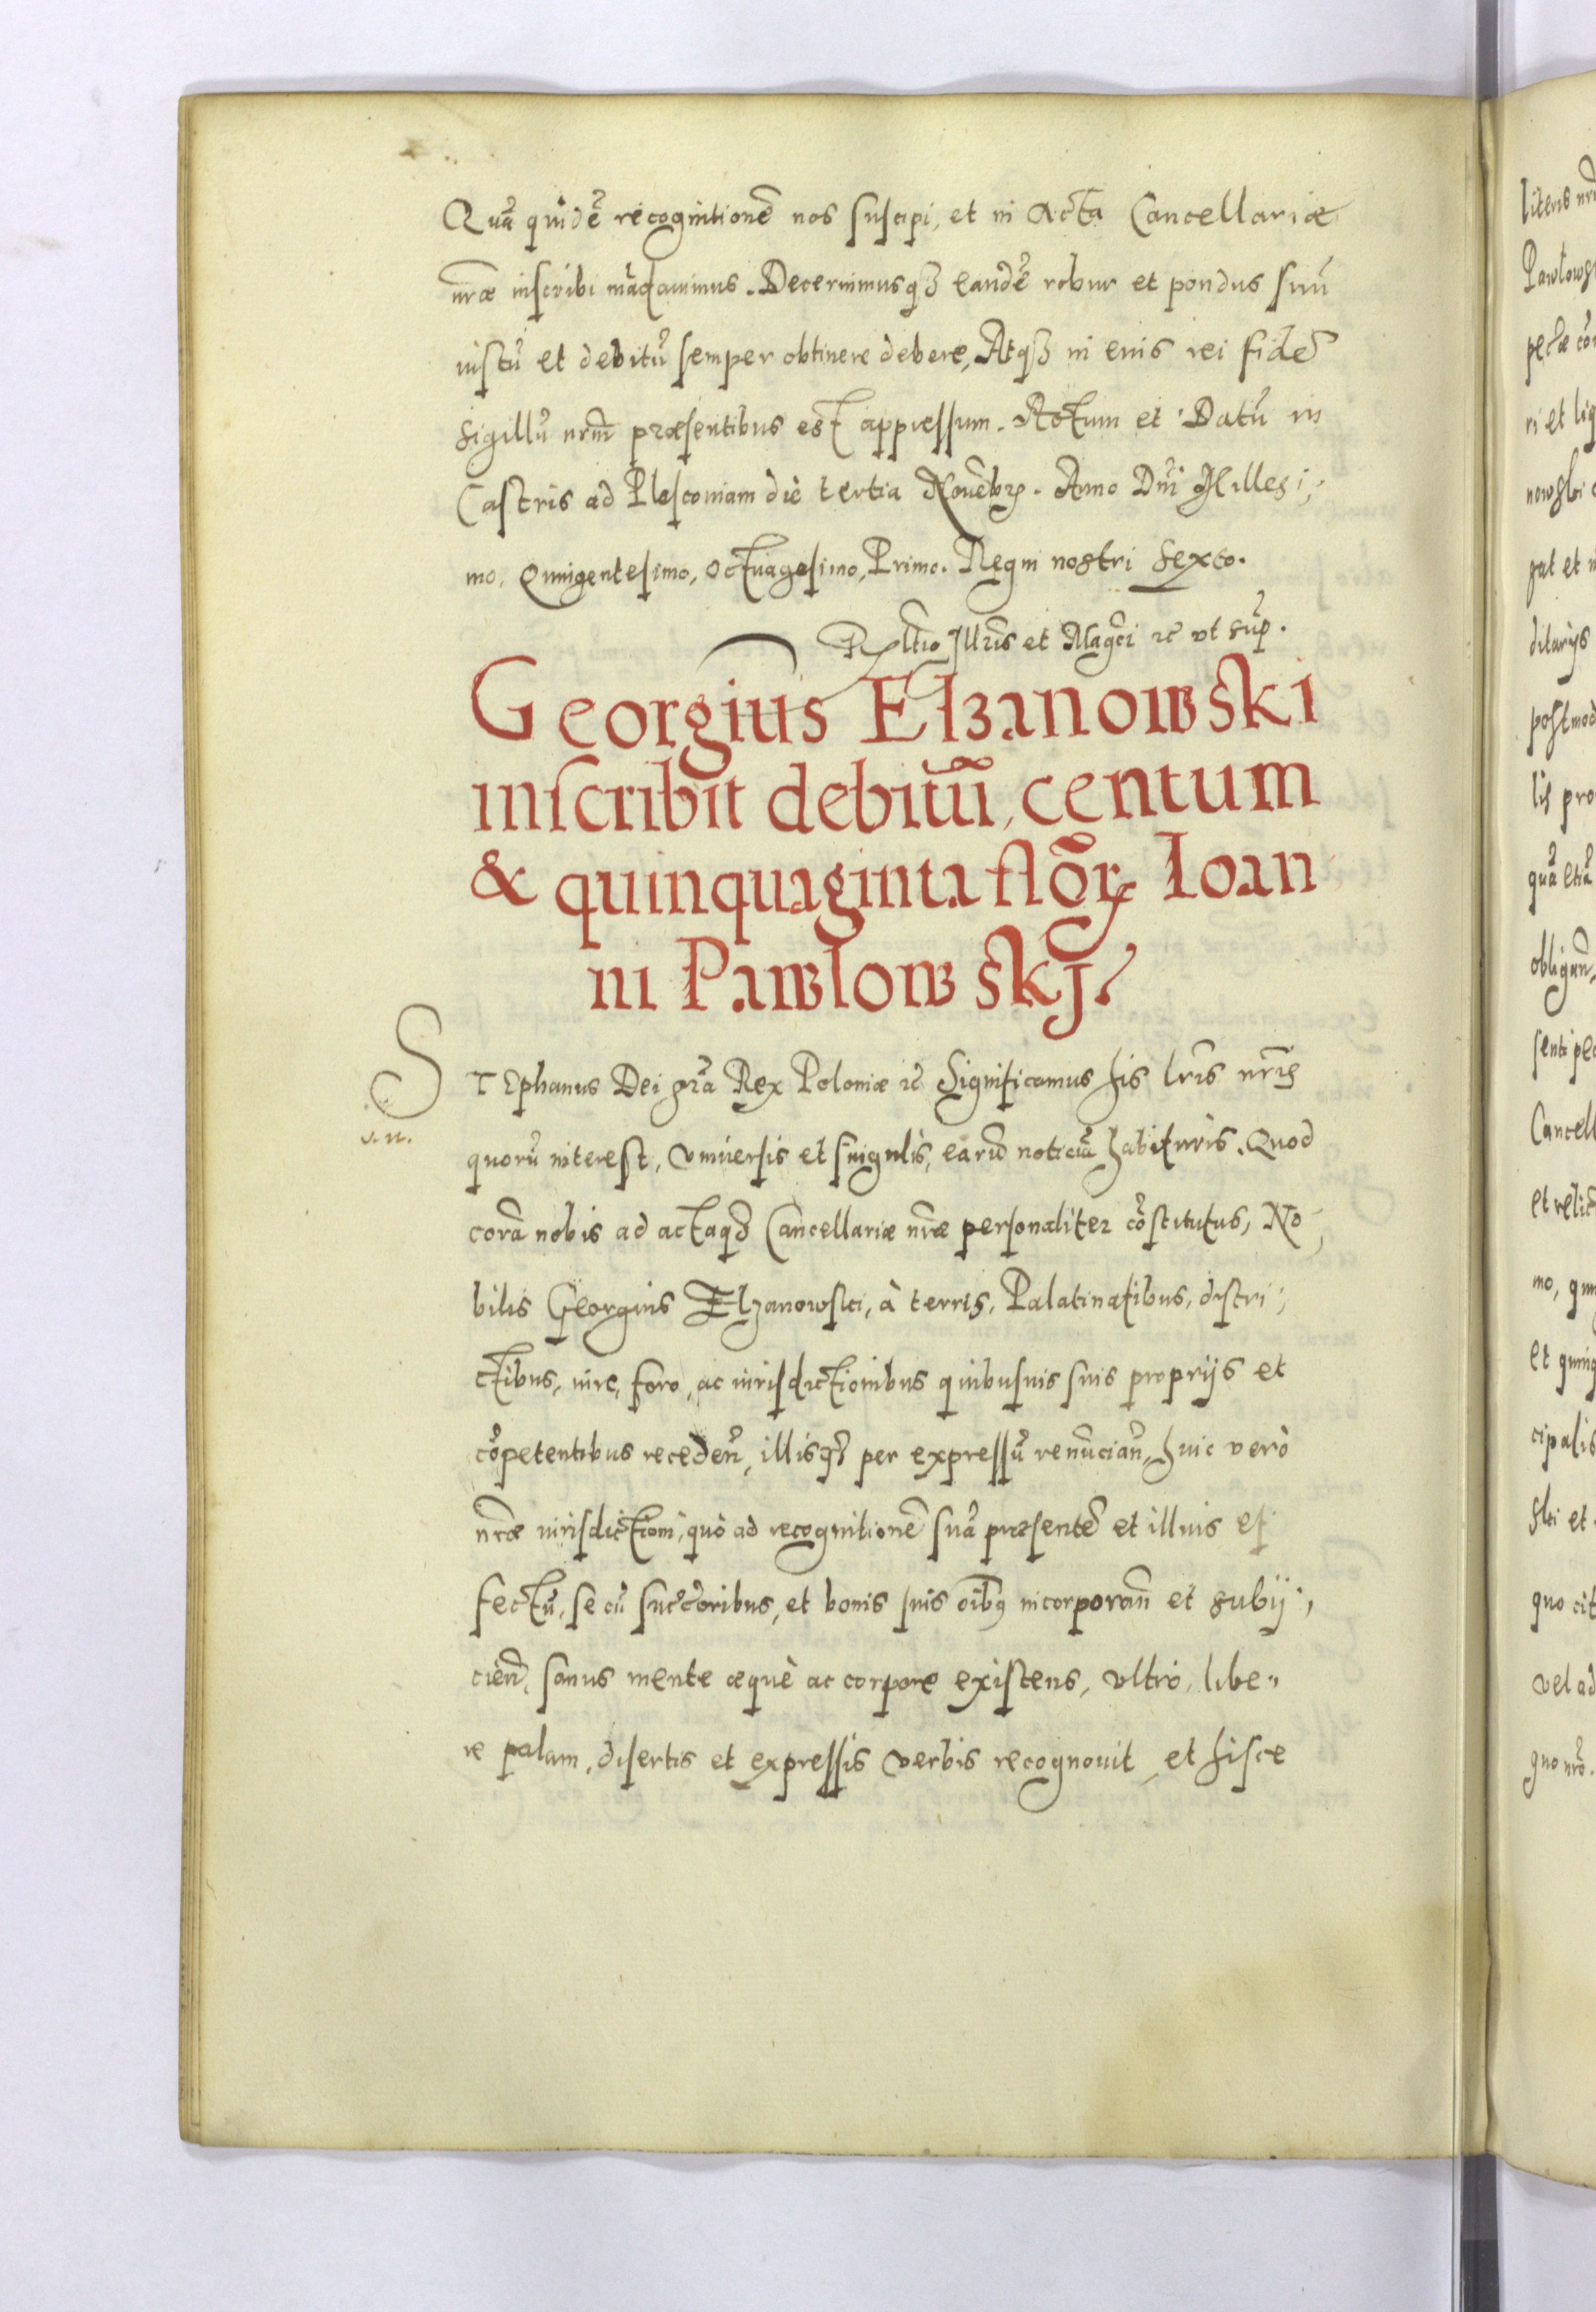 Quã quidẽ recognitionẽ nos suscipi, et in Acta Cancellariæ
nr̃æ inscribi mãdauimus. Decernimusqʒ eandẽ robur et pondus suũ
iustũ et debitũ semper obtinere debere, Atqʒ in euis rei fidẽ
sigillũ nrm̃ præsentibus est appressum. Actum et Datũ in
Castris ad Plesconiam die tertia Nouẽbrꝭ. Anno Dñi Millesi,
mo, Quingentesimo, octuagesimo, Primo. Regni nostri sexto.
Rltio Illrĩs et Magci ꝛc̃ vt sup̃.
Georgius Elʒanowski
inscribit debitũ, centum
& quinquaginta flõrꝝ Ioan
ni Pawlowskj.
STEphanus Dei grã Rex Poloniæ ꝛc̃ Significamus his lrĩs nrĩs
quorũ interest, vniuersis et singulis, earũ noticiã habituris. Quod
corã nobis ad actaqʒ Cancellariæ nr̃æ personaliter cõstitutus, No,
bilis Georgius Elʒanowski, à terris, Palatinatibus, distri,
ctibus, iure, foro, ac iurisdictionibus quibusuis suis proprijs et
cõpetentibus recedeñ, illisqʒ per expressũ renũciañ, huic verò
nr̃æ iurisdictioni, quò ad recognitionẽ suã præsentẽ et illius ef
fectũ, se cũ succ̃oribus, et bonis suis oĩbꝰ incorporañ et subij,
cieñ, sanus mente æquè ac corpore existens, vltrò, libe,,
re palam, disertis et expressis verbis recognouit, et hisce